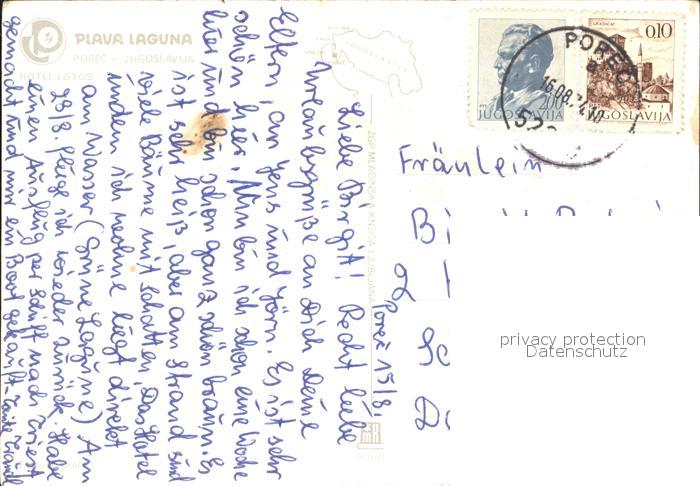 PLAVA LAGUNA
POREČ - JUGOSLAVIJA
HOTEL LOTOS
JUGOSLAVIJA
2.00
JUGOSLAVIJA
0.10
JUGOSLAVIJA
POREČ
16.08.74.10
52
ZGP MLADINSKA KNJIGA LJUBLJANA
Poreč 15/8.
Liebe Birgit! Recht liebe
Urlaubsgrüße an Dich Deine
Eltern, an Jens und Jörn. Es ist sehr
schön hier. Nun bin ich schon eine Woche
hier und bin schon ganz schön braun. Es
ist sehr heiß, aber am Strand sind
viele Bäume mit Schatten. Das Hotel
in dem ich wohne liegt direkt
am Wasser (Grüne Lagune) Am
29/8. fliege ich wieder zurück. Habe
einen Ausflug per Schiff nach Triest
gemacht und mir ein Boot gekauft. Tante
Fräulein
Bi
2
Sc
Da
privacy protection
Datenschutz